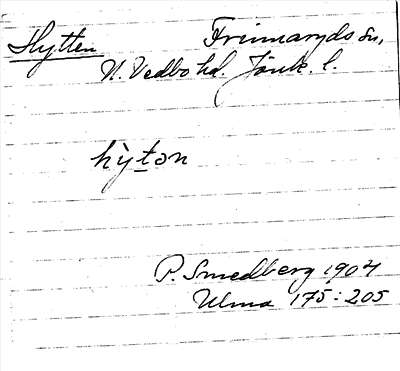 Hytten Frinnaryds sn,
N. Vedbo hd. Jönk. l.
hỳtən
P. Smedberg 1904
Ulma 175:205